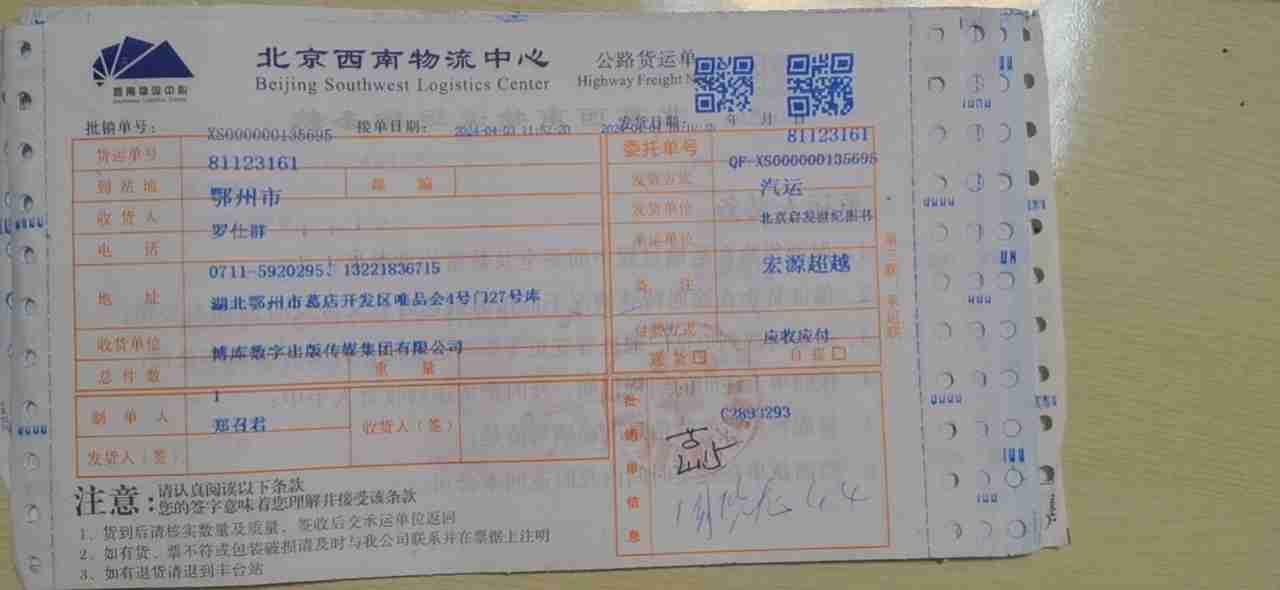 北京西南物流中心
公路货运单
Beijing Southwest Logistics Center
Highway Freight
西南物流中心
批销单号： XS000000135695 接单日期： 2024-04-03 11:52:20 发货日期： 年 月 日
货运单号 81123161 委托单号 81123161
QF-XS000000135695
到站地 鄂州市 邮编 发货方式 汽运
收货人 罗仕群 发货单位 北京启发世纪图书
电话 0711-5920295！13221836715 承运单位 宏源超越
地址 湖北鄂州市葛店开发区唯品会4号门27号库 备注
收货单位 博库数字出版传媒集团有限公司 付款方式 应收应付
总件数 1 重量 送货□ 自提□
制单人 郑召君 收货人（签） 批销单信息 C2893293
发货人（签）
4.4
注意：请认真阅读以下条款
您的签字意味着您理解并接受该条款
1、货到后请核实数量及质量，签收后交承运单位返回
2、如有货、票不符或包装破损请及时与我公司联系并在票据上注明
3、如有退货请退到丰台站